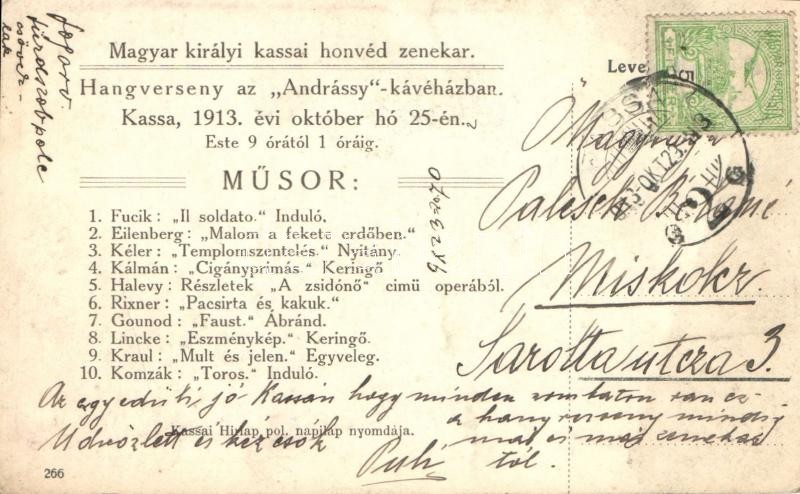 Magyar királyi kassai honvéd zenekar.
Hangverseny az „Andrássy“-kávéházban.
Kassa, 1913. évi október hó 25-én.
Este 9 órától 1 óráig.
MŰSOR:
1. Fucik: „Il soldato.“ Induló.
2. Eilenberg: „Malom a fekete erdőben.“
3. Kéler: „Templomszentelés.“ Nyitány.
4. Kálmán: „Cigányprimás.“ Keringő
5. Halevy: Részletek „A zsidónő“ cimü operából.
6. Rixner: „Pacsirta és kakuk.“
7. Gounod: „Faust.“ Ábránd.
8. Lincke: „Eszménykép.“ Keringő.
9. Kraul: „Mult és jelen.“ Egyveleg.
10. Komzák: „Toros.“ Induló.
Kassai Hirlap pol. napilap nyomdája.
266
Leve
5
913 OKT 23
Miskolcz.
Sarolta utcza 3.
Az egyedüli jó Kassán hogy minden szombaton van
a hangverseny mindig
más és más zenekar
tól.
Üdvözlet és kézcsók